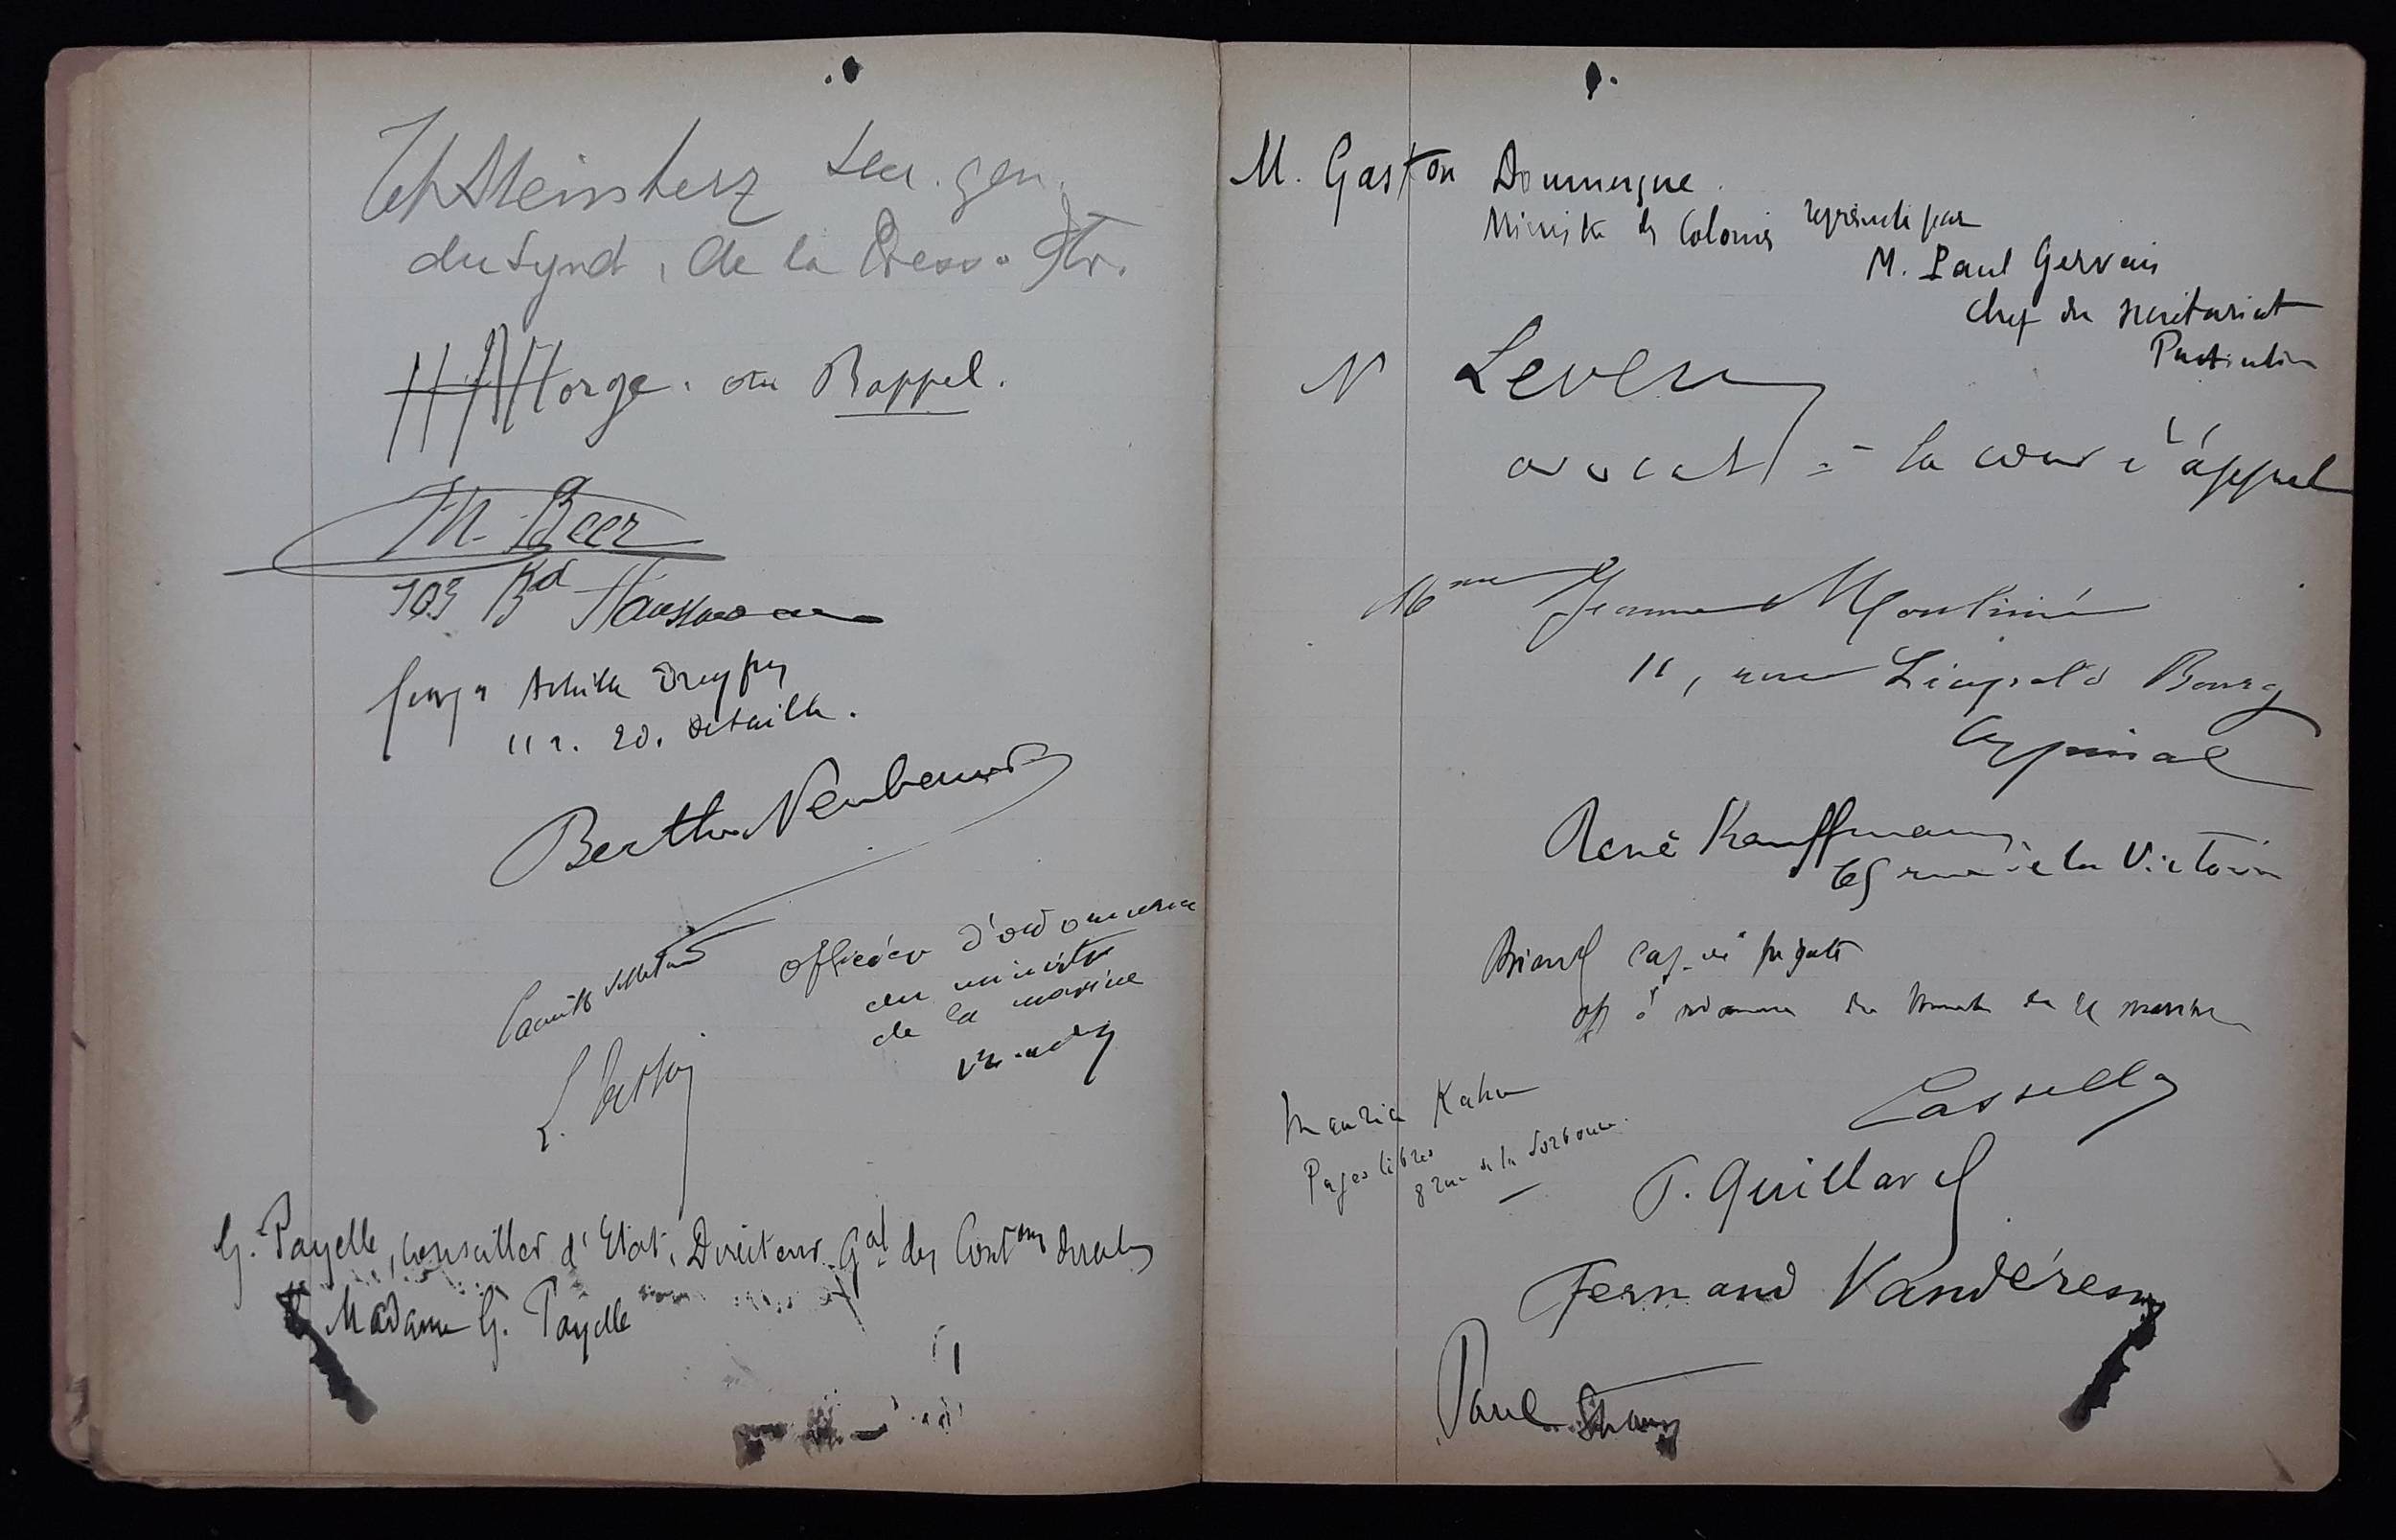 Steinherz Secr. gen.
du Synd. de la Presse Etr.
Horge. du Rappel.
Th. Beer
103 Bd Haussmann
George Achille Dreyfus
11 r. Ed. Detaille.
Berthe
Camille Pelletan
officier d'ordonnance
du ministre
de la marine
L.
G. Payelle, conseiller d'Etat, Directeur Gal des Conton directes
& Madame G. Payelle
M. Gaston Doumergue.
Ministre des Colonies représenté par
M. Paul Gervais
Chef du secrétariat
Particulier
Leven
avocat à la cour d'appel
Mme Jeanne Moulinié
11, rue Léopold Bourg
Epinal
René Kauffmann
65 rue de la Victoire
cap. de frégate
off d'ordonnance du Ministre de la marine
Cassella
Maurice Kahn
Pages libres
8 rue de la Sorbonne.
P. Quillard
Fernand Vandérem
Paul Strauss